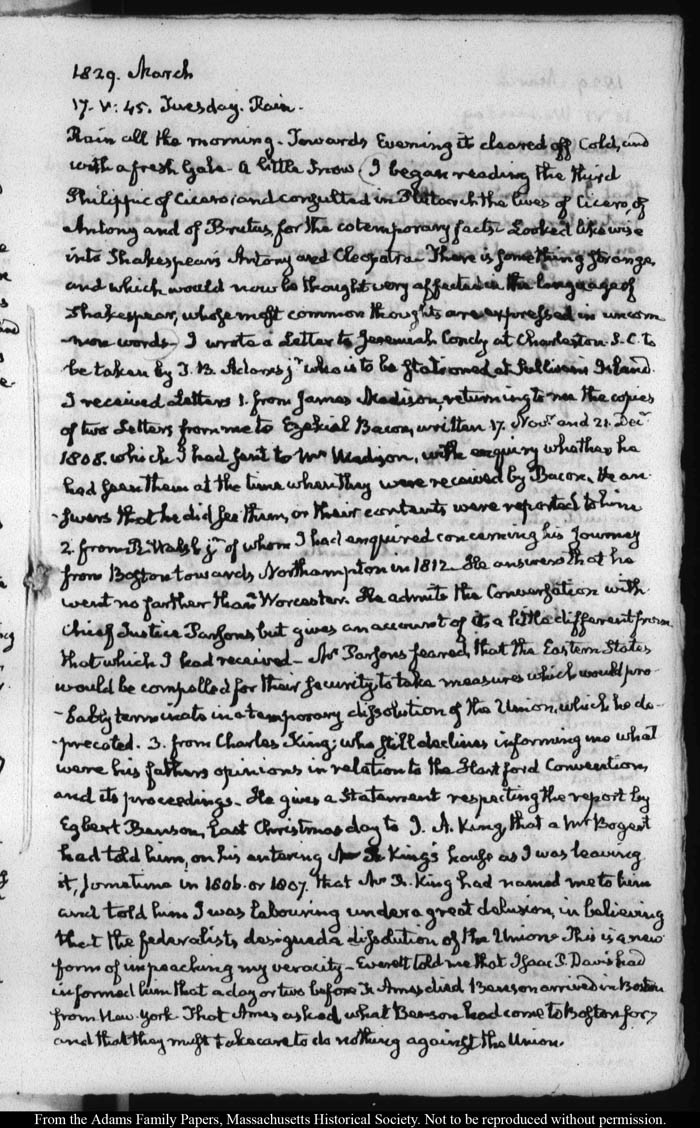 1829. March
17. V: 45. Tuesday. Rain.
Rain all the morning. Towards Evening it cleared off Cold, and
with a fresh Gale. A little Snow (I began reading the third
Philippic of Cicero; and consulted in Plutarch the lives of Cicero, of
Antony and of Brutus, for the cotemporary facts. Looked likewise
into Shakespear's Antony and Cleopatra. There is something strange,
and which would now be thought very affected in the language of
Shakespear, whose most common thoughts are expressed in uncom
-mon words) I wrote a Letter to Jeremiah Condy at Charleston S.C. to
be taken by T. B. Adams jr. who is to be stationed at Sullivan's Island.
I received Letters 1. from James Madison, returning to me the copies
of two Letters from me to Ezekiel Bacon, written 17. Novr. and 21. Decr.
1808. which I had sent to Mr Madison, with enquiry whether he
had seen them at the time when they were received by Bacon. He an-
-swers that he did see them, or their contents were reported to him
2. from R. Walsh jr. of whom I had enquired concerning his Journey
from Boston towards Northampton in 1812. He answers that he
went no farther than Worcester. He admits the Conversation with
Chief Justice Parsons, but gives an account of it a little different from
that which I had received - Mr Parsons feared, that the Eastern States
would be compelled for their security, to take measures which would pro-
-bably terminate in a temporary dissolution of the Union, which he de-
-precated. 3. from Charles King; who still declines informing me what
were his father's opinions in relation to the Hartford Convention,
and its proceedings. He gives a Statement respecting the report by
Egbert Benson, last Christmas day to J. A. King, that a Mr Bogert
had told him, on his entering Mr R. King's house as I was leaving
it, sometime in 1806. or 1807. that Mr R. King had named me to him
and told him I was labouring under a great delusion, in believing
that the federalists, designed a dissolution of the Union. This is a new
form of impeaching my veracity - Everett told me that Isaac P. Davis had
informed him that a day or two before F. Ames died Benson arrived in Boston
from New-York. That Ames asked what Benson had come to Boston for,
and that they must take care to do nothing against the Union.
From the Adams Family Papers, Massachusetts Historical Society. Not to be reproduced without permission.